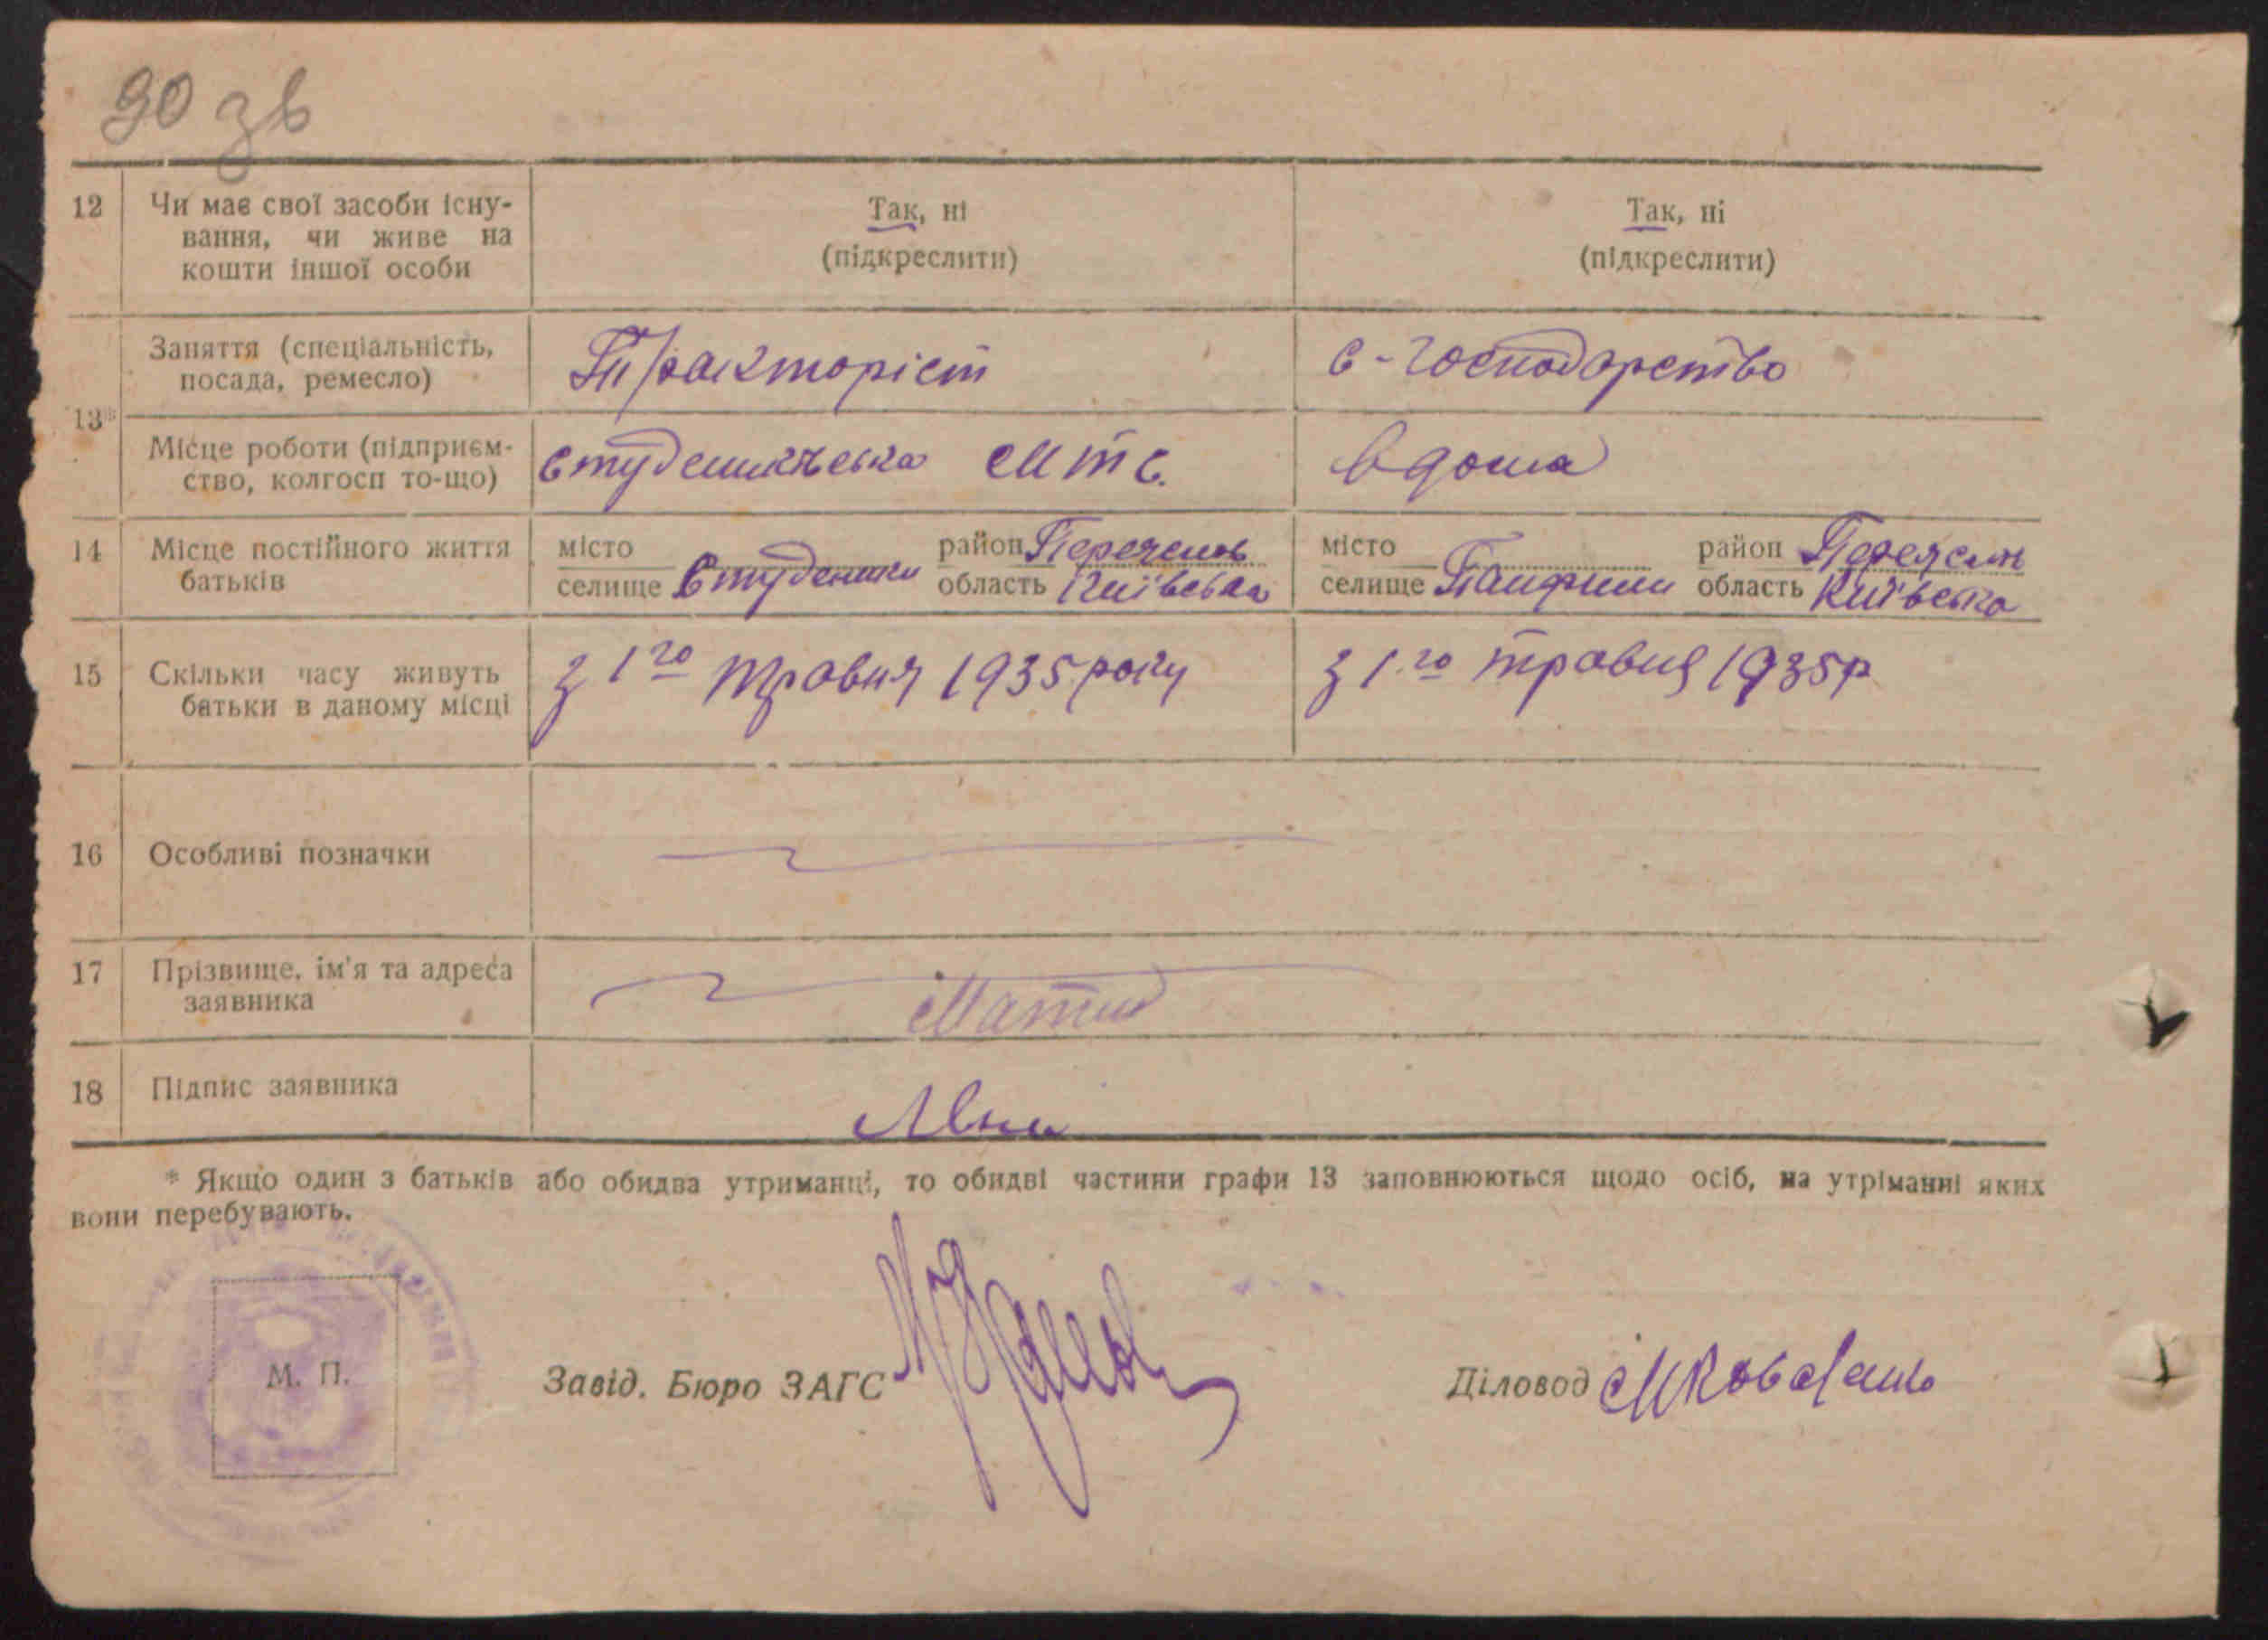 90 зв
12 Чи має свої засоби існу- Так, ні Так, ні
вання, чи живе на (підкреслити) (підкреслити)
кошти іншої особи
13*
Заняття (спеціальність, Тракторіст с-господарство
посада, ремесло)
Місце роботи (підприєм- Студениківська МТС. вдома
ство, колгосп то-що)
14 Місце постійного життя місто район Переяслав місто район Переяслав
батьків селище Студеники область Київська селище Панфили область Київська
15 Скільки часу живуть з 1го травня 1935 року з 1.го травня 1935р
батьки в даному місці
16 Особливі позначки
17 Прізвище, ім'я та адреса
заявника
18 Підпис заявника
* Якщо один з батьків або обидва утриманці, то обидві частини графи 13 заповнюються щодо осіб, на утріманні яких
вони перебувають.
М. П.
Завід. Бюро ЗАГС
Діловод МКоваленко